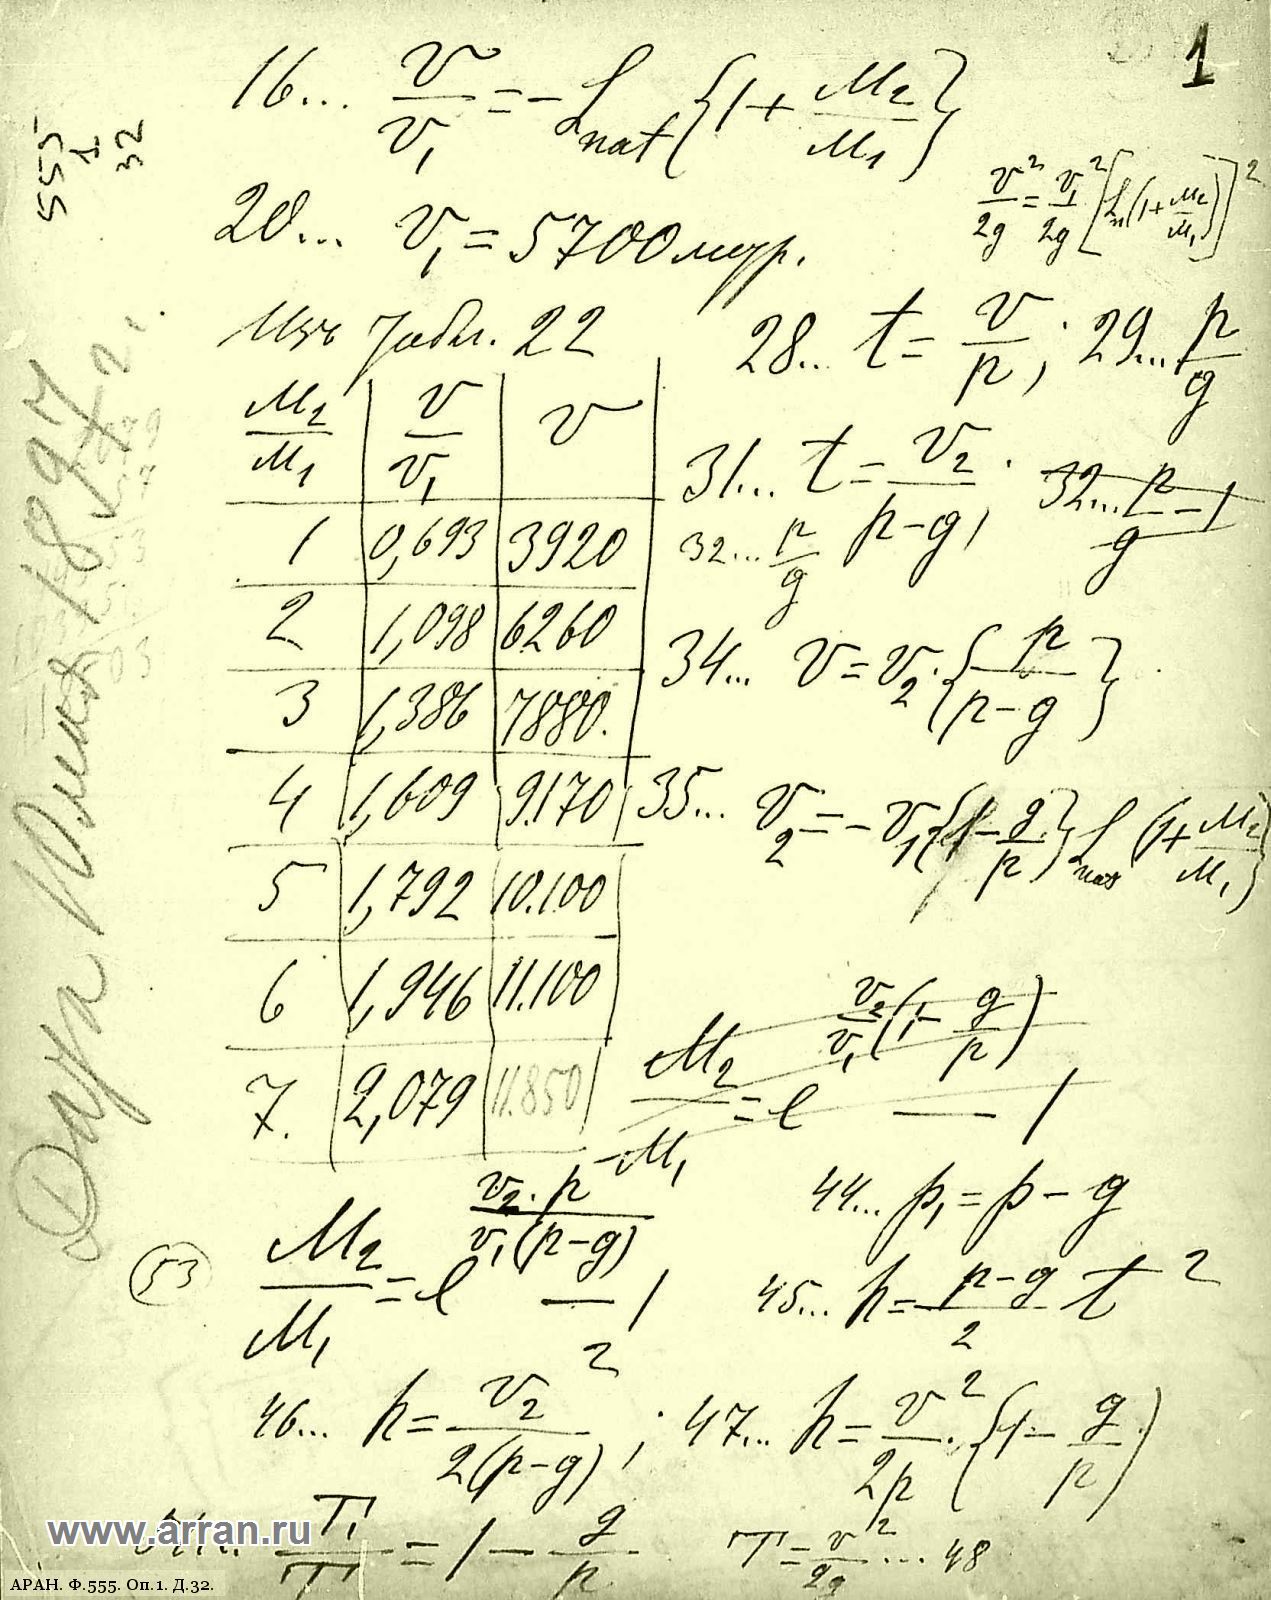 1
555
1
32
16... v/v₁ = - l nat {1 + M₂/M₁}
v²/2g = v₁²/2g [l n (1 + M₂/M₁)]²
20... v₁ = 5700
Изъ табл. 22
28... t = v/p; 29... p/g
M₂/M₁ | v/v₁ | v
1 | 0,693 | 3920
2 | 1,098 | 6260
3 | 1,386 | 7880.
4 | 1,609 | 9.170
5 | 1,792 | 10.100
6 | 1,946 | 11.100
7. | 2,079 | 11.850
31... t = v₂/(p-g); 32... p/g - 1
32... p/g
34... v = v₂ · {p/(p-g)}
35... v₂ = - v₁ {1 - g/p} l nat {1 + M₂/M₁}
M₂/M₁ = e^(v₂/v₁ (1 - g/p)) — 1
44... p₁ = p - g
(53) M₂/M₁ = e^(v₂·p/v₁(p-g)) — 1
45... h = (p-g)/2 t²
46... h = v₂²/2(p-g); 47... h = v²/2p · {1 - g/p}
T₁/T = 1 - g/p
T = v²/2g ... 48
1897
www.arran.ru
АРАН. Ф.555. Оп.1. Д.32.